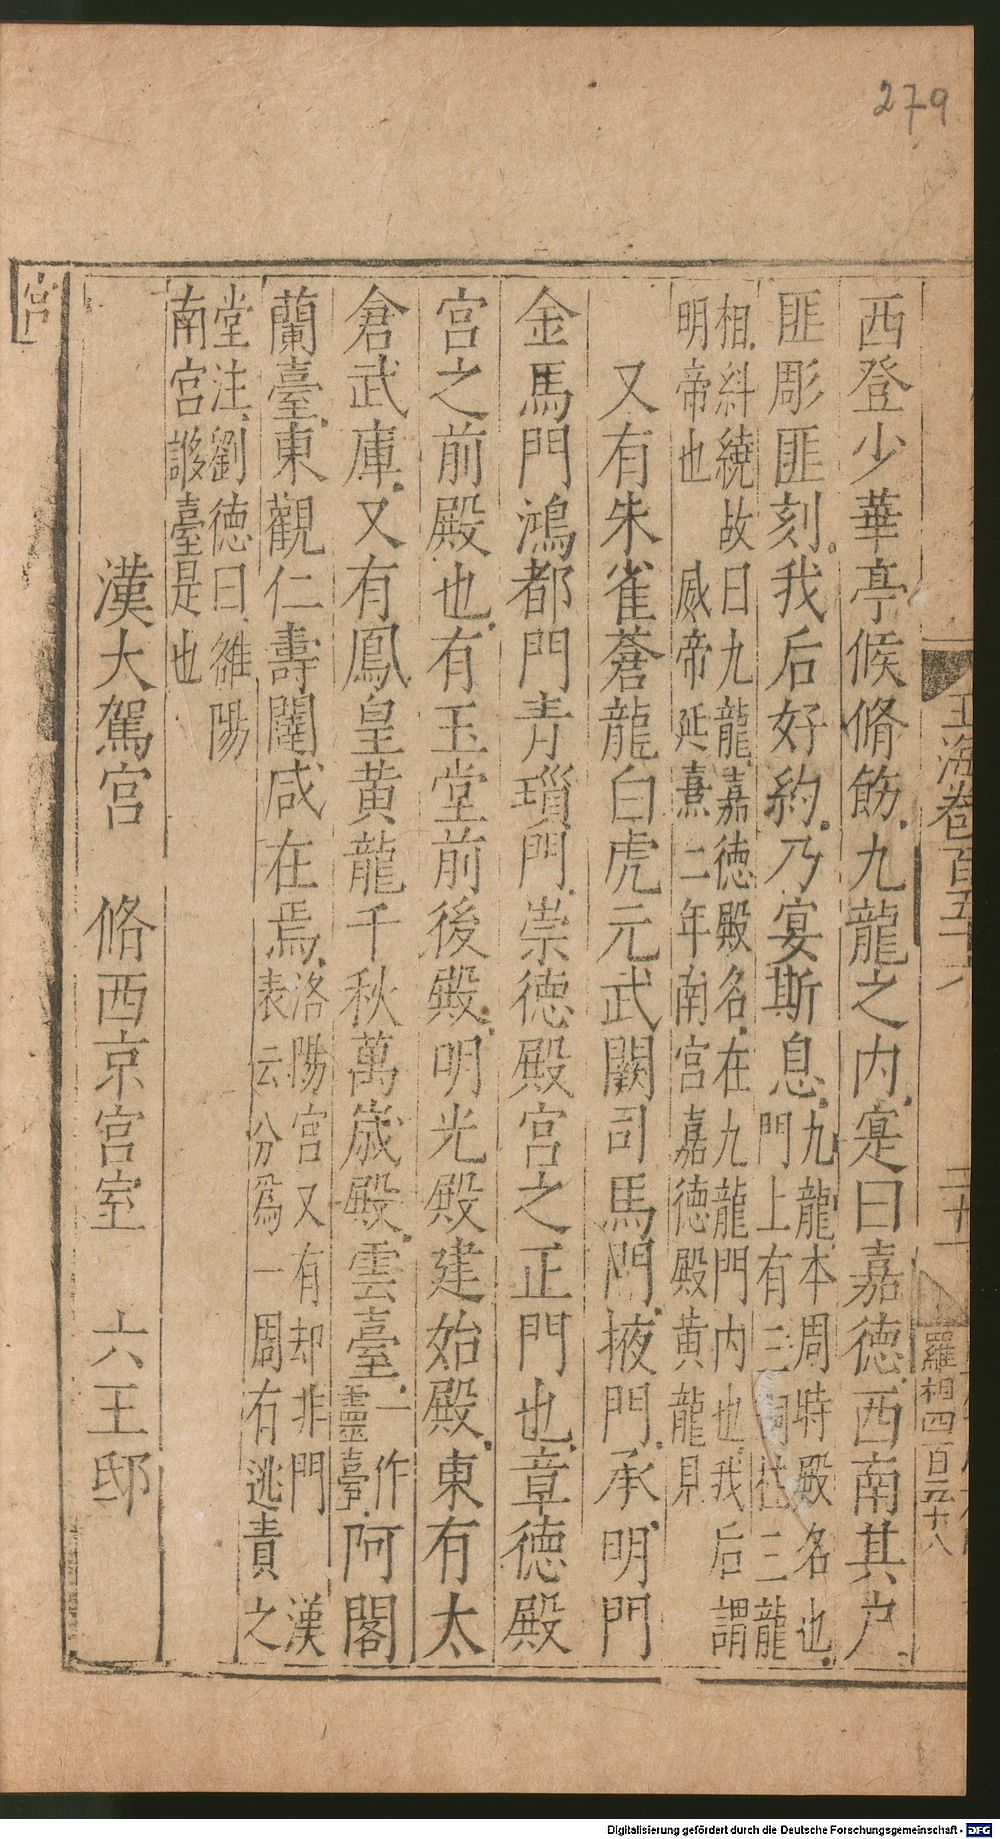 279
玉海卷百五十六
二十一
羅相四百五十八
西登少華亭候脩飭九龍之内寔曰嘉德西南其户
匪彫匪刻我后好約乃宴斯息九龍本周時殿名也
門上有三銅柱三龍
相糾繞故曰九龍嘉德殿名在九龍門内也我后謂
明帝也　威帝延熹二年南宮嘉德殿黄龍見
又有朱雀蒼龍白虎元武闕司馬門掖門承明門
金馬門鴻都門青瑣門崇德殿宮之正門也章德殿
宮之前殿也有玉堂前後殿明光殿建始殿東有太
倉武庫又有鳳皇黄龍千秋萬歲殿雲臺一作
靈臺
阿閣
蘭臺東觀仁壽闥咸在焉洛陽宮又有却非門　漢
表云分爲一周有逃責之
堂注劉德曰雒陽
南宮謻臺是也
漢大駕宮　脩西京宮室　六王邸
宮
Digitalisierung gefördert durch die Deutsche Forschungsgemeinschaft - DFG